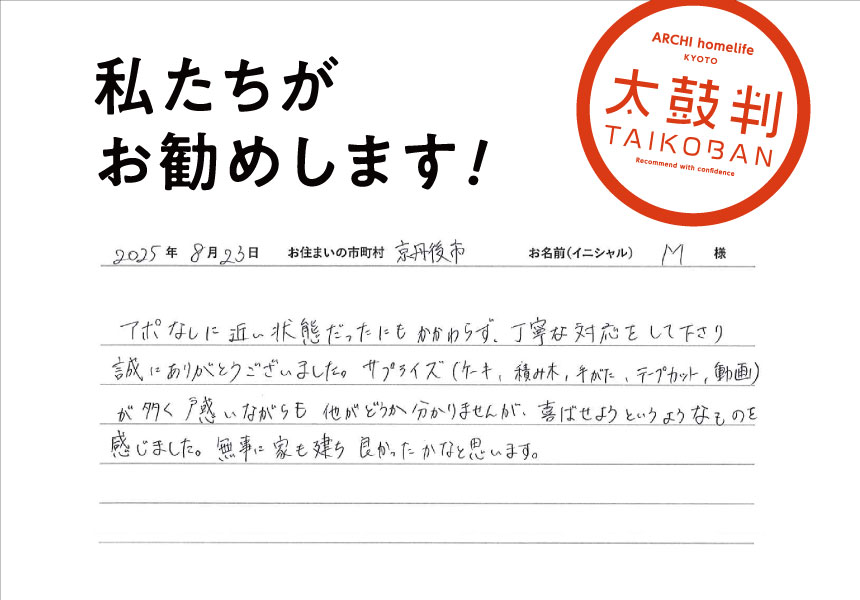 私たちが
お勧めします!
ARCHI homelife
KYOTO
太鼓判
TAIKOBAN
Recommend with confidence
2025年 8月23日 お住まいの市町村 京丹後市 お名前(イニシャル) M 様
アポなしに近い状態だったにもかかわらず、丁寧な対応をして下さり
誠にありがとうございました。サプライズ(ケーキ、積み木、手がた、テープカット、動画)
が多く戸惑いながらも他がどうか分かりませんが、喜ばせようというようなものを
感じました。無事に家も建ち良かったかなと思います。